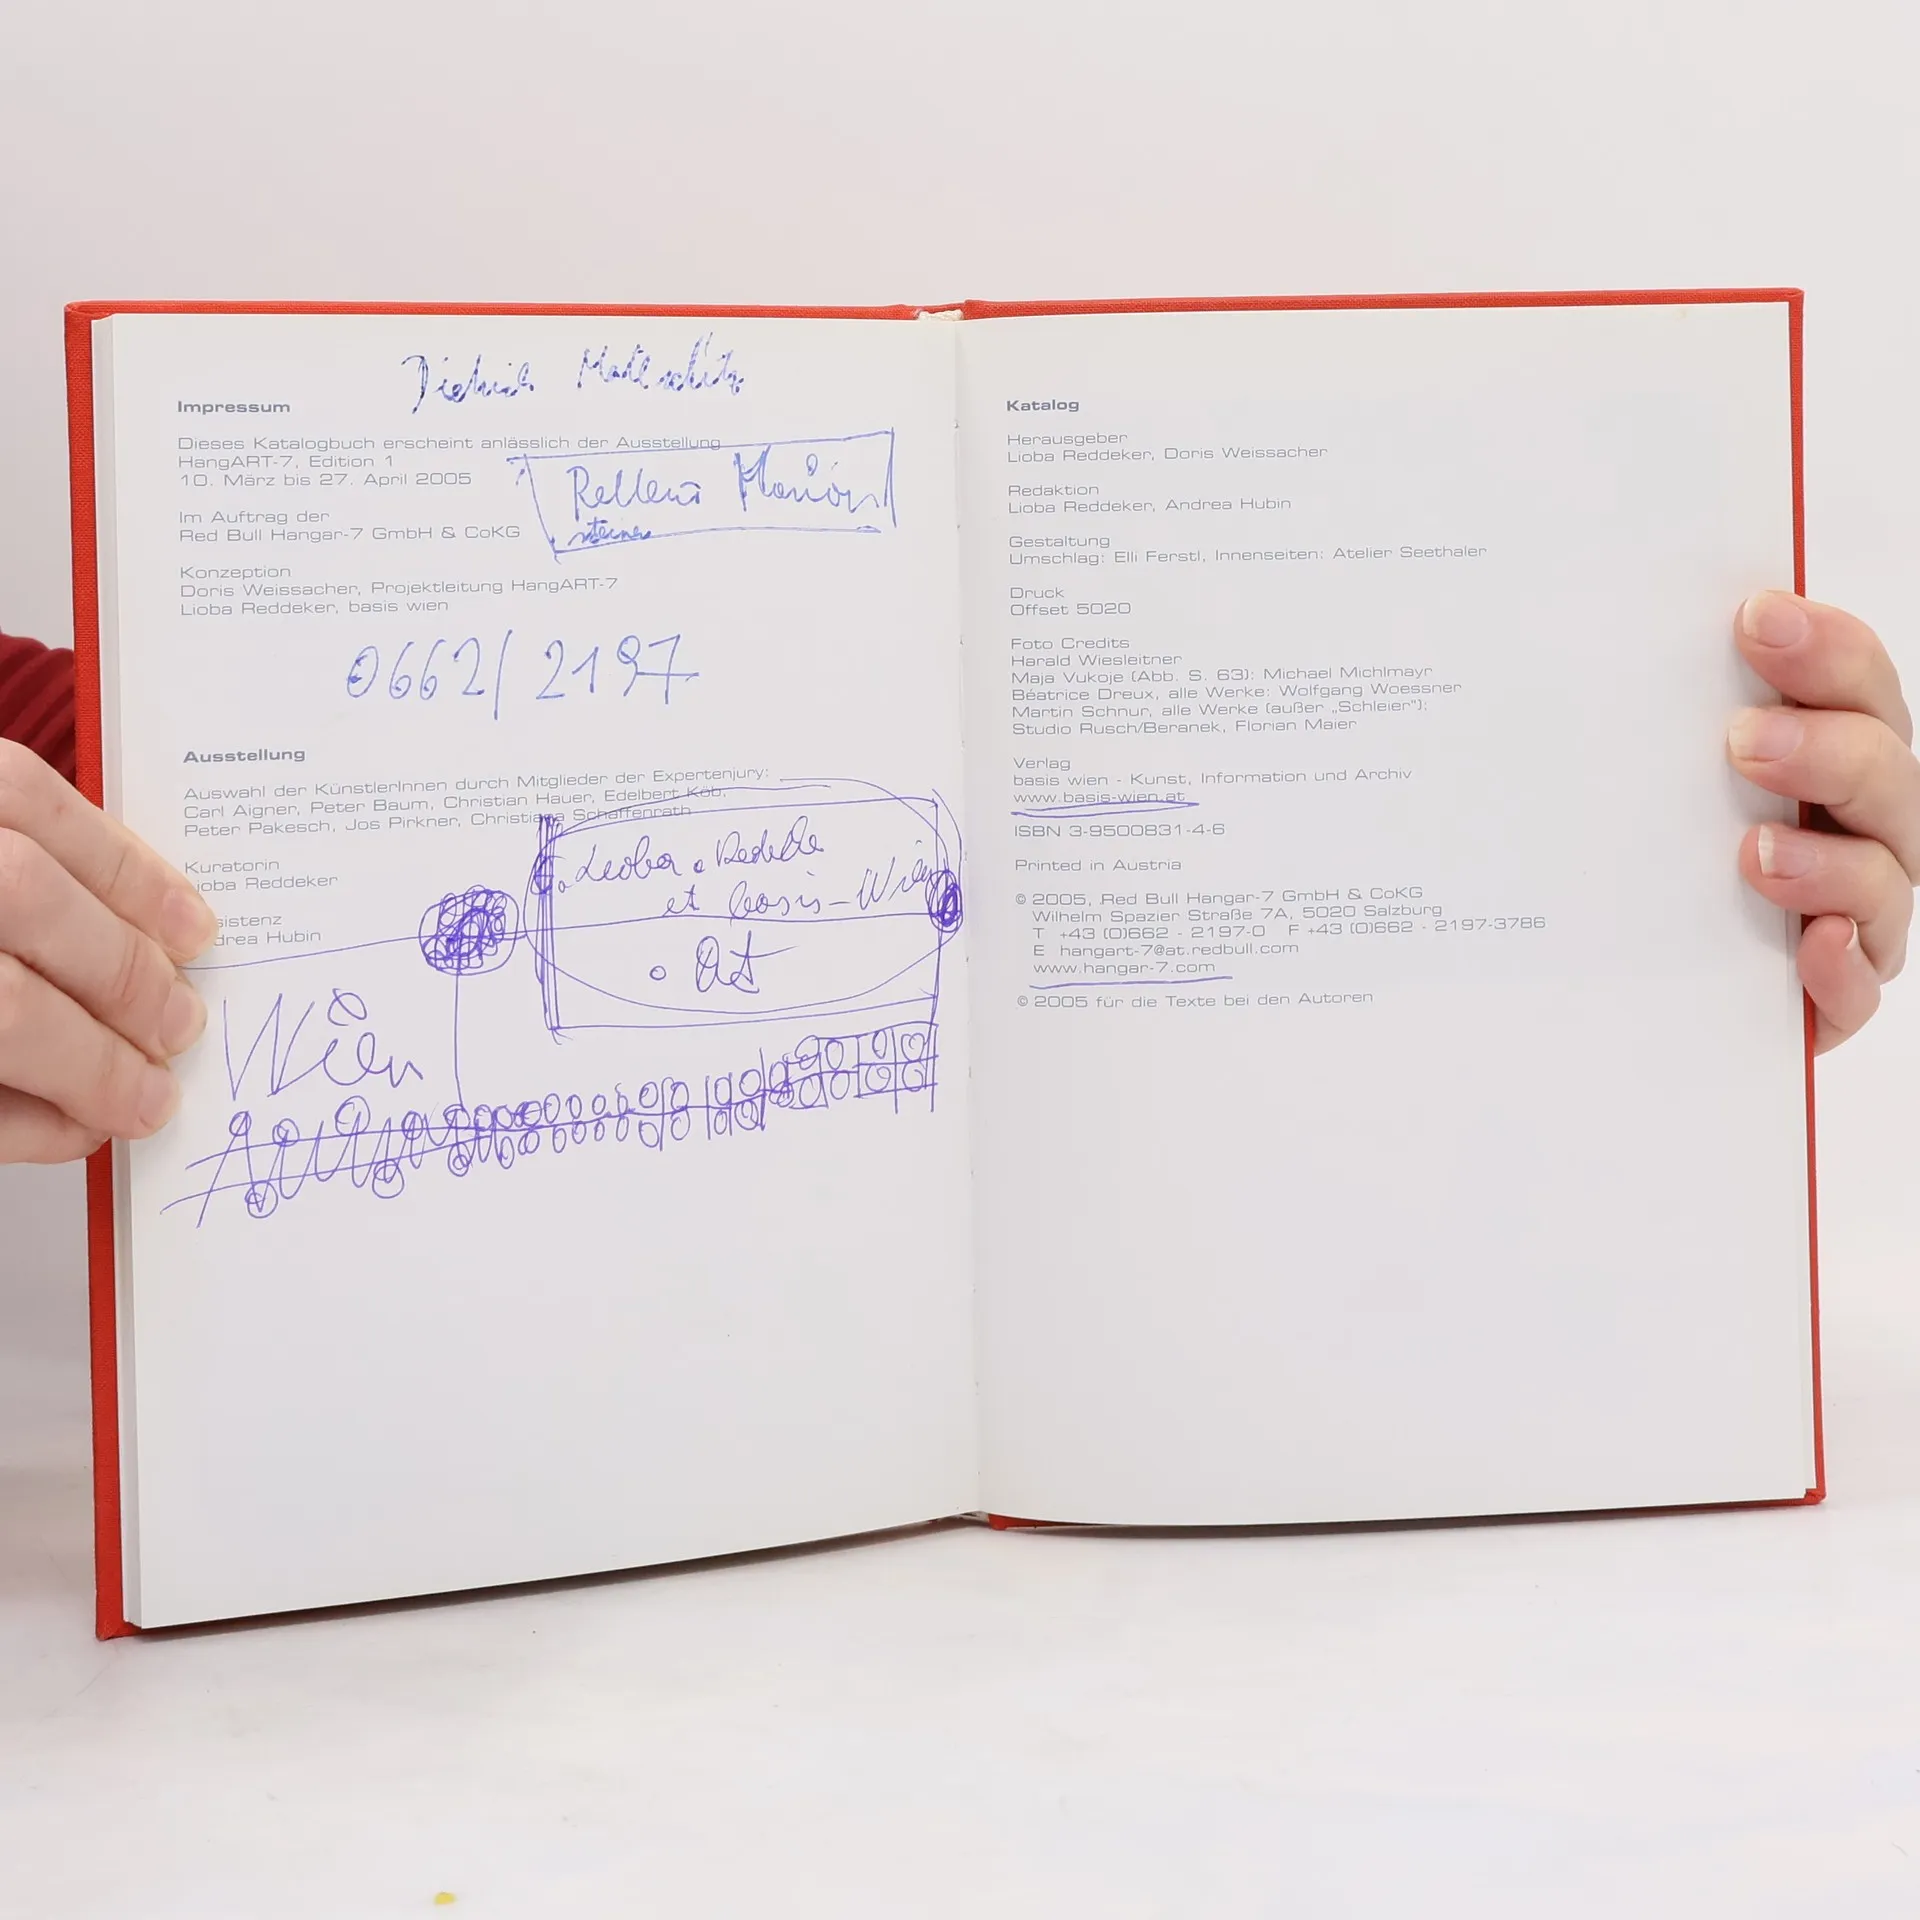 Impressum
Dieses Katalogbuch erscheint anlässlich der Ausstellung
HangART-7, Edition 1
10. März bis 27. April 2005
Im Auftrag der
Red Bull Hangar-7 GmbH & CoKG
Konzeption
Doris Weissacher, Projektleitung HangART-7
Lioba Reddeker, basis wien
0662/ 2197
Ausstellung
Auswahl der KünstlerInnen durch Mitglieder der Expertenjury:
Carl Aigner, Peter Baum, Christian Hauer, Edelbert Köb,
Peter Pakesch, Jos Pirkner, Christiana Schaffenrath
et basis-Wien
Kuratorin
ioba Reddeker
sistenz
drea Hubin
Wien
Katalog
Herausgeber
Lioba Reddeker, Doris Weissacher
Redaktion
Lioba Reddeker, Andrea Hubin
Gestaltung
Umschlag: Elli Ferstl, Innenseiten: Atelier Seethaler
Druck
Offset 5020
Foto Credits
Harald Wiesleitner
Maja Vukoje (Abb. S. 63): Michael Michlmayr
Béatrice Dreux, alle Werke: Wolfgang Woessner
Martin Schnur, alle Werke (außer „Schleier"):
Studio Rusch/Beranek, Florian Maier
Verlag
basis wien - Kunst, Information und Archiv
www.basis-wien.at
ISBN 3-9500831-4-6
Printed in Austria
© 2005, Red Bull Hangar-7 GmbH & CoKG
Wilhelm Spazier Straße 7A, 5020 Salzburg
T +43 (0)662 - 2197-0 F +43 (0)662 - 2197-3786
E hangart-7@at.redbull.com
www.hangar-7.com
© 2005 für die Texte bei den Autoren